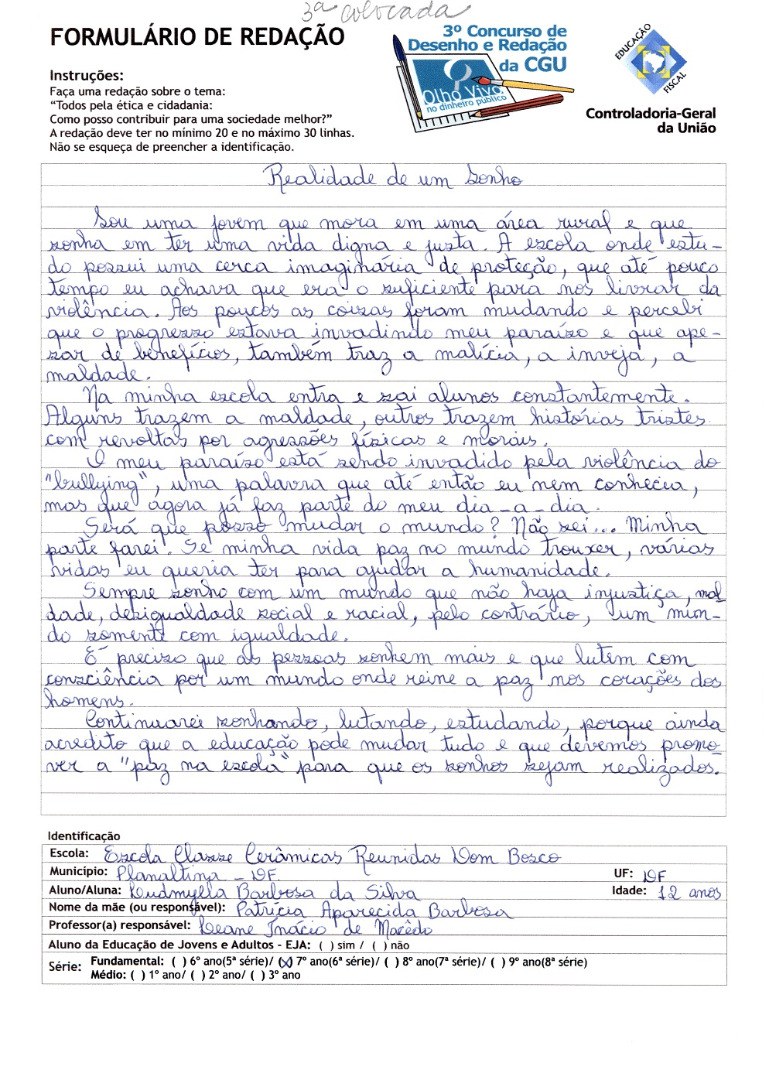 3ª colocada
FORMULÁRIO DE REDAÇÃO
Instruções:
Faça uma redação sobre o tema:
"Todos pela ética e cidadania:
Como posso contribuir para uma sociedade melhor?"
A redação deve ter no mínimo 20 e no máximo 30 linhas.
Não se esqueça de preencher a identificação.
3º Concurso de
Desenho e Redação
da CGU
Olho Vivo
no dinheiro público
EDUCAÇÃO
FISCAL
Controladoria-Geral
da União
Realidade de um Sonho
Sou uma jovem que mora em uma área rural e que
sonha em ter uma vida digna e justa. A escola onde estu-
do possui uma cerca imaginária de proteção, que até pouco
tempo eu achava que era o suficiente para nos livrar da
violência. Aos poucos as coisas foram mudando e percebi
que o progresso estava invadindo meu paraíso e que ape-
sar de benefícios, também traz a malícia, a inveja, a
maldade.
Na minha escola entra e sai alunos constantemente.
Alguns trazem a maldade, outros trazem histórias tristes
com revoltas por agressões físicas e morais.
O meu paraíso está sendo invadido pela violência do
"bullying", uma palavra que até então eu nem conhecia,
mas que agora já faz parte do meu dia-a-dia.
Será que posso mudar o mundo? Não sei... Minha
parte farei. Se minha vida paz no mundo trouxer, várias
vidas eu queria ter para ajudar a humanidade.
Sempre sonho com um mundo que não haja injustiça, mal
dade, desigualdade social e racial, pelo contrário, um mun-
do somente com igualdade.
É preciso que as pessoas sonhem mais e que lutem com
consciência por um mundo onde reine a paz nos corações dos
homens.
Continuarei sonhando, lutando, estudando, porque ainda
acredito que a educação pode mudar tudo e que devemos promo
ver a "paz na escola" para que os sonhos sejam realizados.
Identificação
Escola: Escola Classe Cerâmicas Reunidas Dom Bosco
Município: Planaltina - DF. UF: DF
Aluno/Aluna: Ludmylla Barbosa da Silva Idade: 12 anos
Nome da mãe (ou responsável): Patrícia Aparecida Barbosa
Professor(a) responsável: Deane Inácio de Macêdo
Aluno da Educação de Jovens e Adultos - EJA: ( ) sim / ( ) não
Série: Fundamental: ( ) 6º ano(5ª série)/ (X) 7º ano(6ª série)/ ( ) 8º ano(7ª série)/ ( ) 9º ano(8ª série)
Médio: ( ) 1º ano/ ( ) 2º ano/ ( ) 3º ano